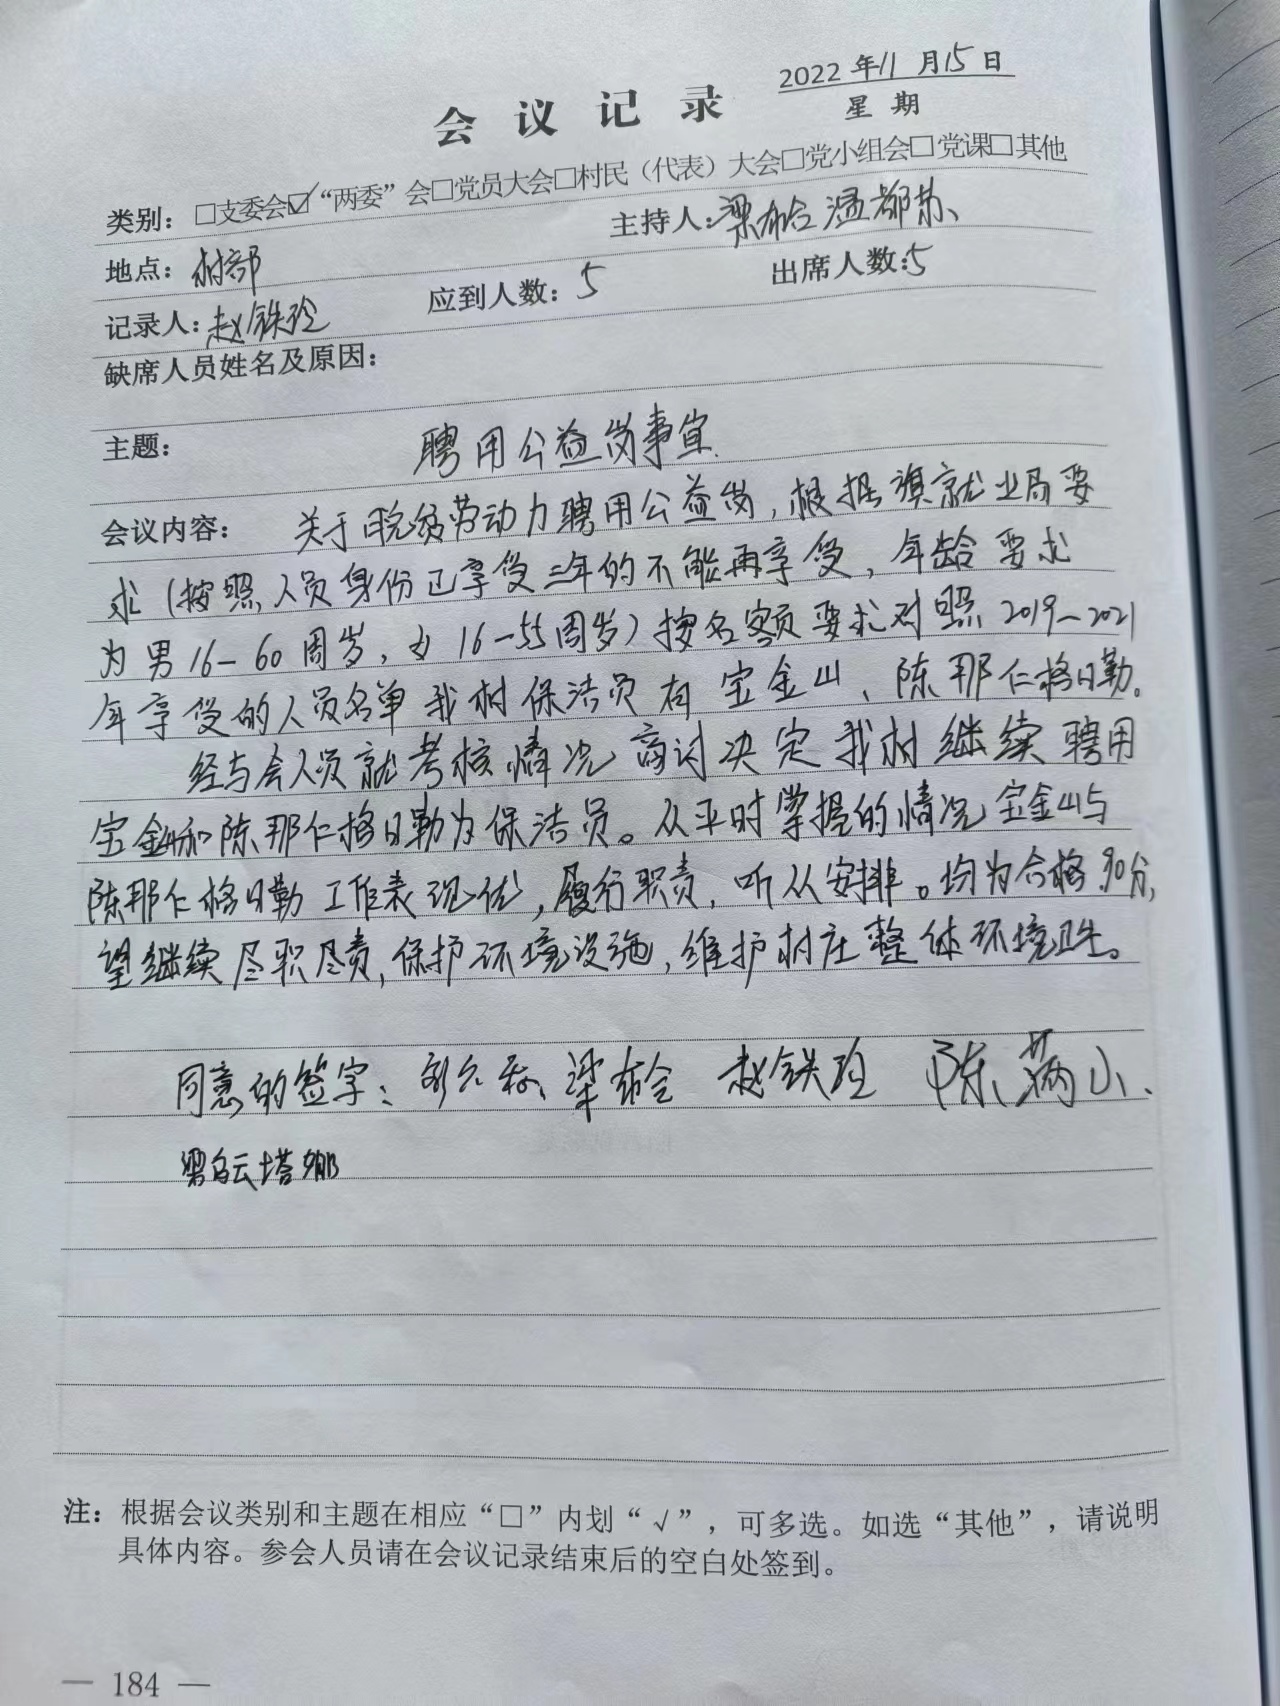 2022 年 11 月 15 日
会 议 记 录
星 期
类别：□支委会☑“两委”会□党员大会□村民（代表）大会□党小组会□党课□其他
地点：村部 主持人：梁布合温都苏
记录人：赵铁玲 应到人数：5 出席人数：5
缺席人员姓名及原因：
主题： 聘用公益岗事宜
会议内容： 关于脱贫劳动力聘用公益岗，根据旗就业局要
求（按照人员身份已享受三年的不能再享受，年龄要求
为男16-60周岁，女16-55周岁）按名额要求对照2019-2021
年享受的人员名单我村保洁员有宝金山、陈那仁格日勒。
经与会人员就考核情况商讨决定我村继续聘用
宝金山和陈那仁格日勒为保洁员。从平时掌握的情况宝金山与
陈那仁格日勒工作表现优，履行职责，听从安排。均为合格90分，
望继续尽职尽责，保护环境设施，维护村庄整体环境卫生。
同意的签字： 梁布合 赵铁玲 陈满小
梁白云塔娜
注：根据会议类别和主题在相应“□”内划“√”，可多选。如选“其他”，请说明
具体内容。参会人员请在会议记录结束后的空白处签到。
— 184 —